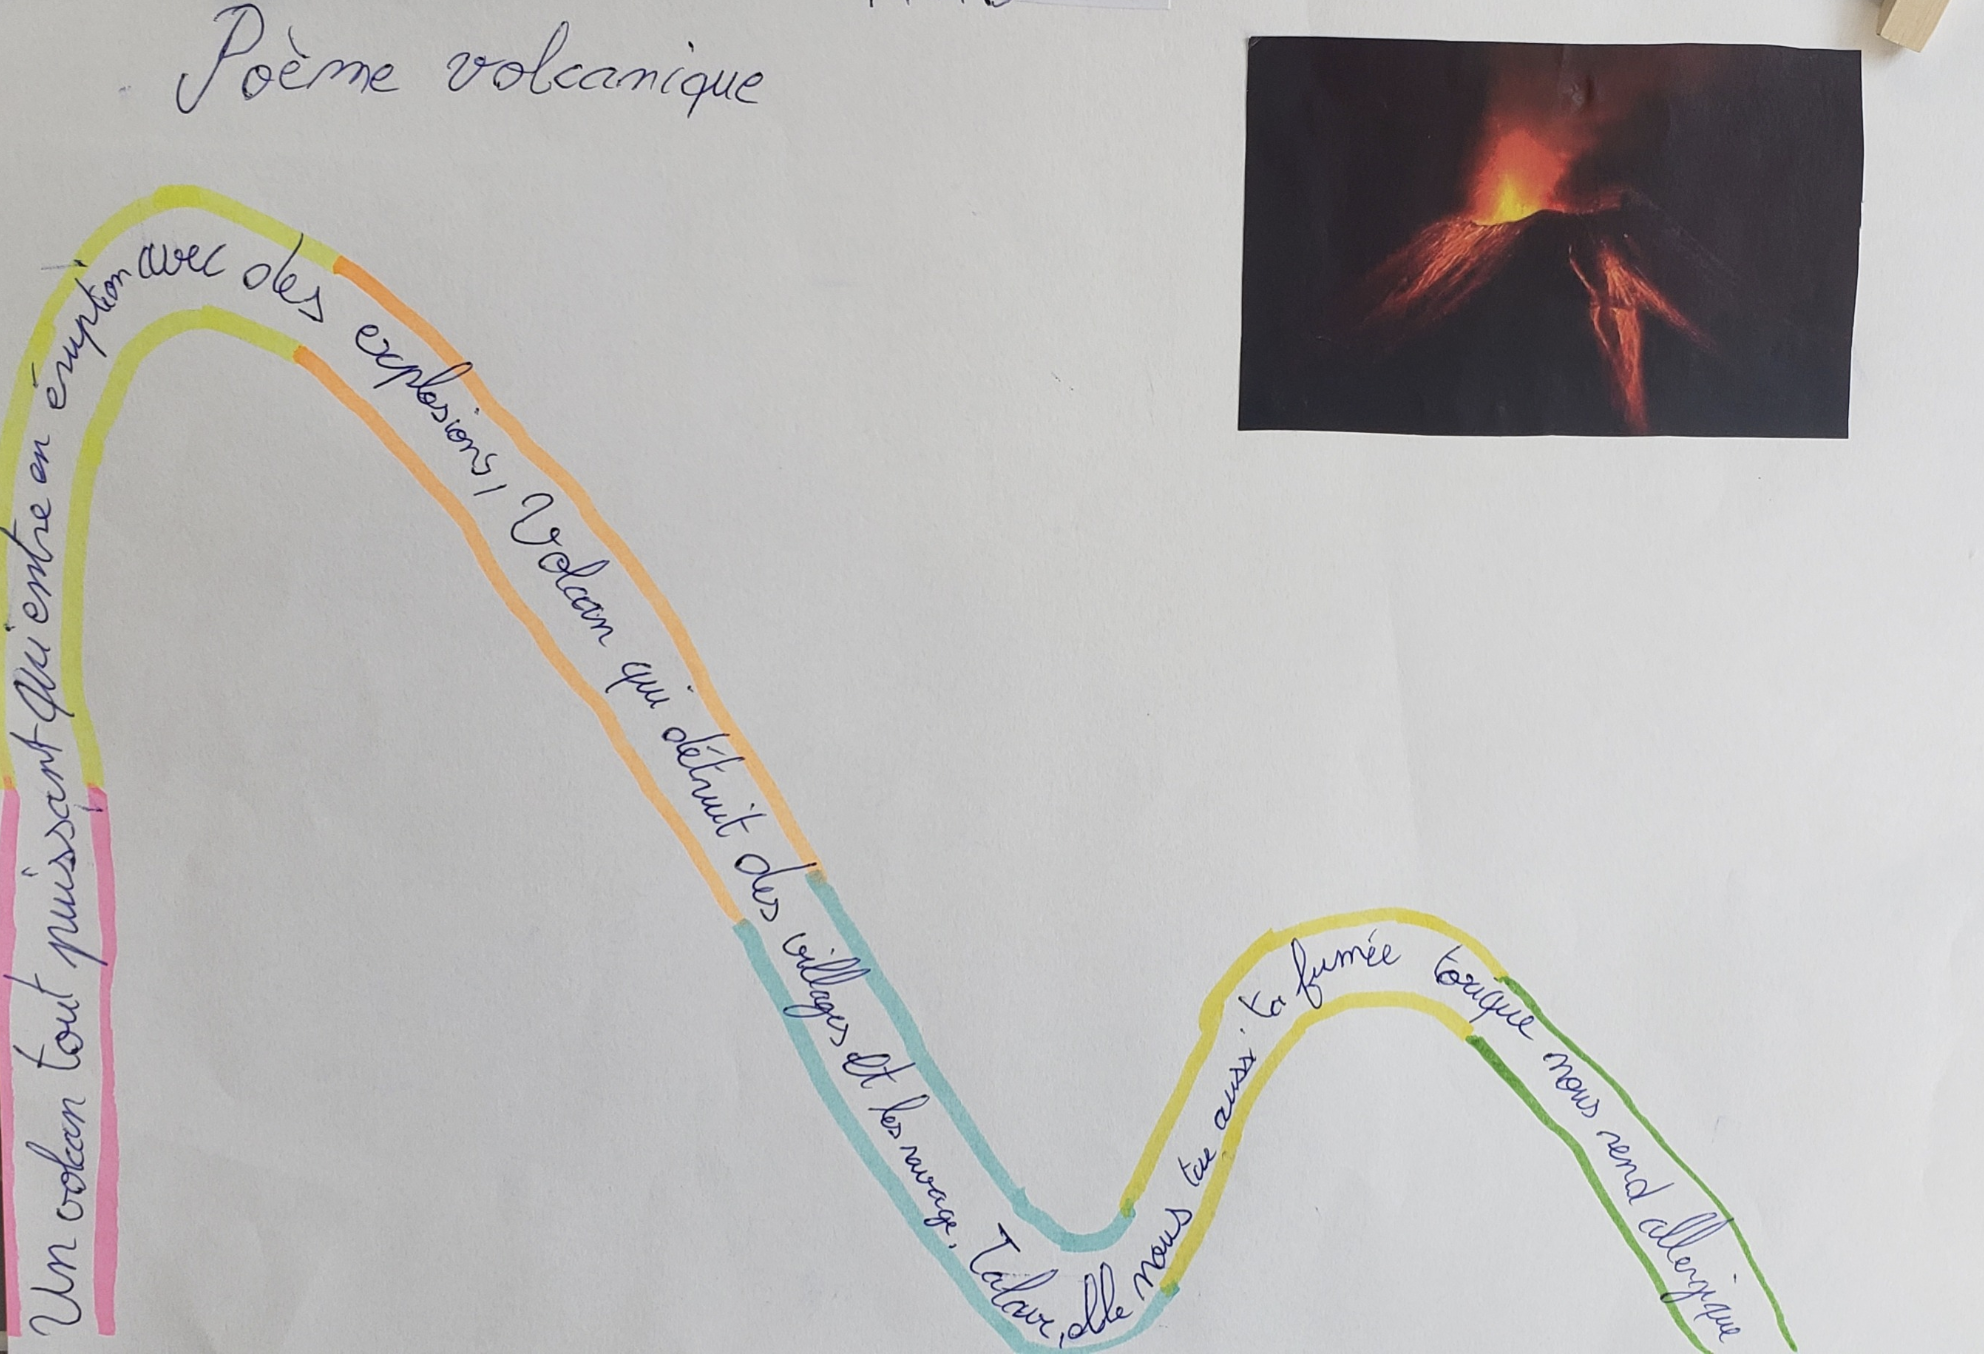 Poème volcanique
Un volcan tout puissant qui entre en éruption avec des explosions, Volcan qui détruit des villages et les ravage, Ta lave, elle nous tue aussi. ta fumée toxique nous rend allergique